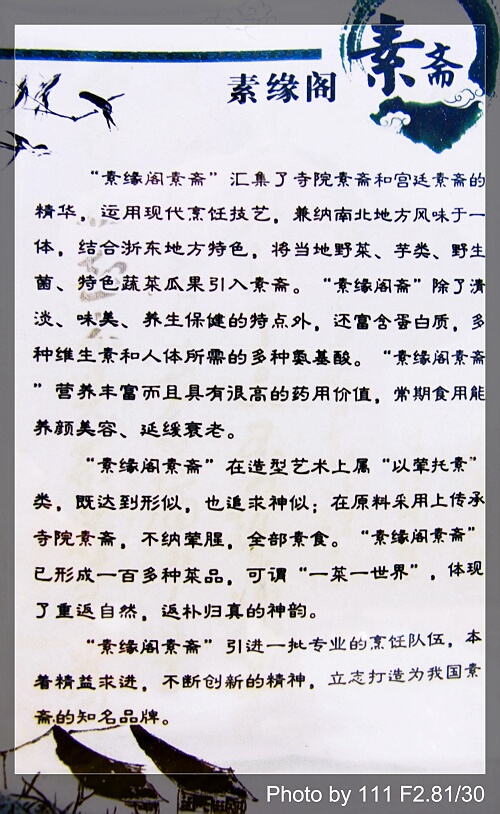 素斋
素缘阁
“素缘阁素斋”汇集了寺院素斋和宫廷素斋的
精华，运用现代烹饪技艺，兼纳南北地方风味于一
体，结合浙东地方特色，将当地野菜、芋类、野生
菌、特色蔬菜瓜果引入素斋。“素缘阁素斋”除了清
淡、味美、养生保健的特点外，还富含蛋白质，多
种维生素和人体所需的多种氨基酸。“素缘阁素斋
”营养丰富而且具有很高的药用价值，常期食用能
养颜美容、延缓衰老。
“素缘阁素斋”在造型艺术上属“以荤托素”
类，既达到形似，也追求神似；在原料采用上传承
寺院素斋，不纳荤腥，全部素食。“素缘阁素斋”
已形成一百多种菜品，可谓“一菜一世界”，体现
了重返自然，返朴归真的神韵。
“素缘阁素斋”引进一批专业的烹饪队伍，本
着精益求进，不断创新的精神，立志打造为我国素
斋的知名品牌。
Photo by 111 F2.81/30